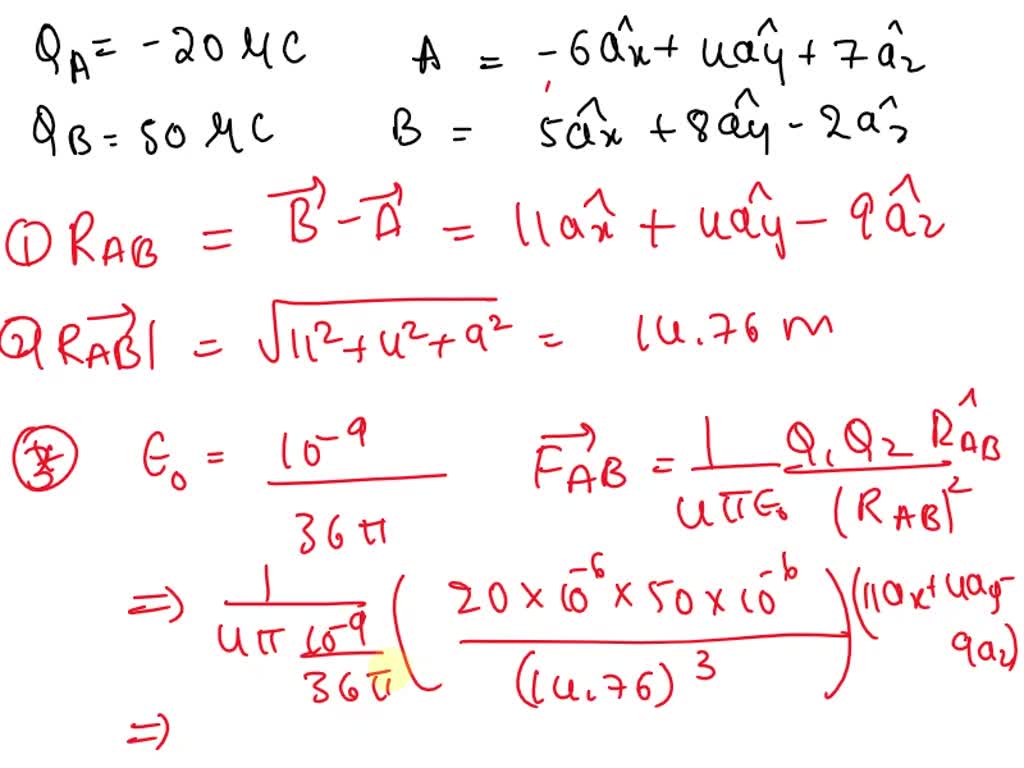 Q_A = -20 μC A = -6âx + 4ây + 7âz
Q_B = 50 μC B = 5âx + 8ây - 2âz
① R_AB = B⃗ - A⃗ = 11âx + 4ây - 9âz
② |R⃗_AB| = √(11² + 4² + 9²) = 14.76 m
ϵ₀ = 10⁻⁹ / 36π F⃗_AB = 1 / 4πϵ₀ Q₁Q₂ R̂_AB / (R_AB)²
⇒ 1 / 4π 10⁻⁹ / 36π ( 20 × 10⁻⁶ × 50 × 10⁻⁶ / (14.76)³ ) (11ax + 4ay - 9az)
⇒